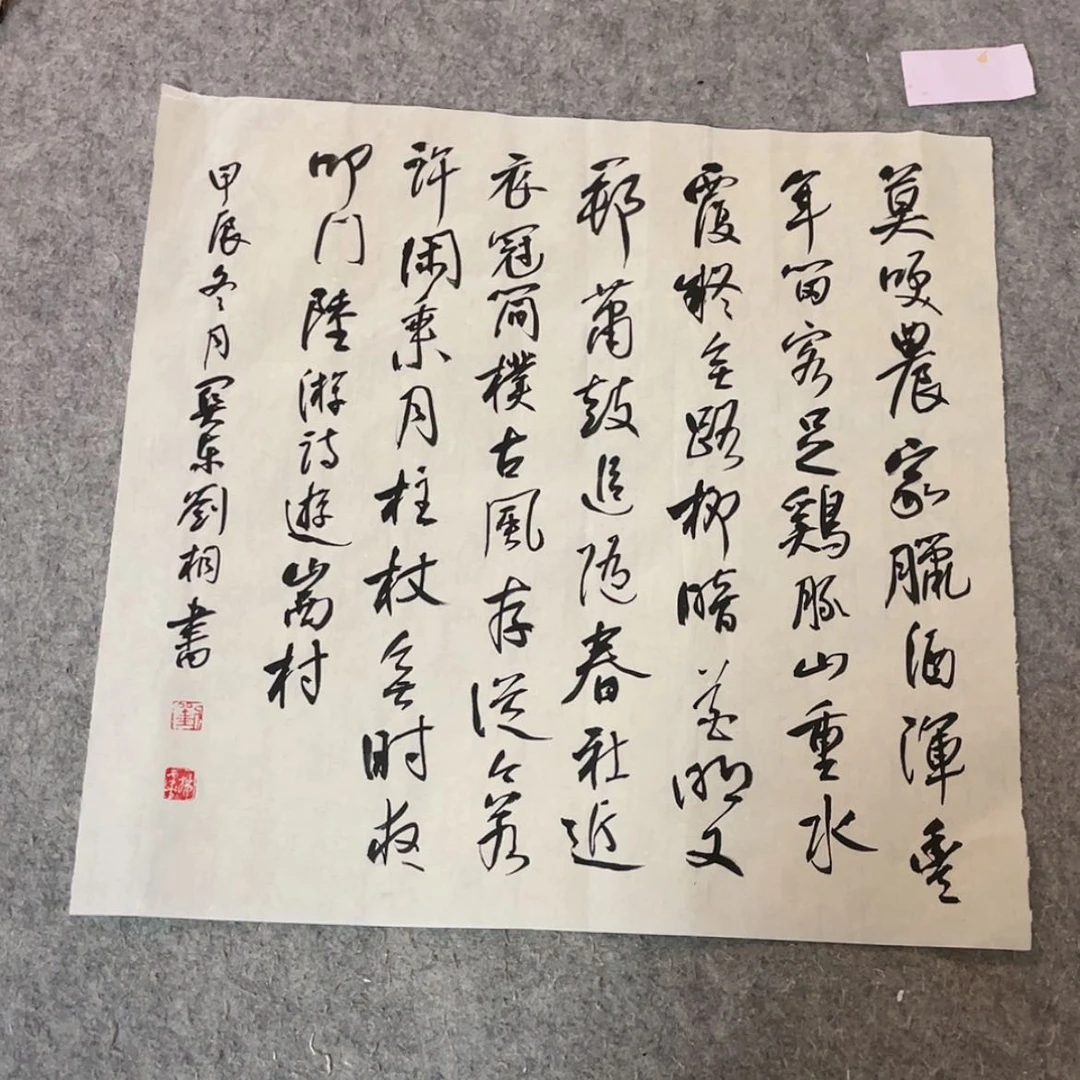 莫咲農家臘酒渾豐
年留客足鷄豚山重水
覆疑無路柳暗花明又
一邨蕭鼓追随春社近
衣冠簡樸古風存從今若
許閑乘月柱杖無時夜
叩门陸游詩遊山西村
甲辰冬月關東劉桐書